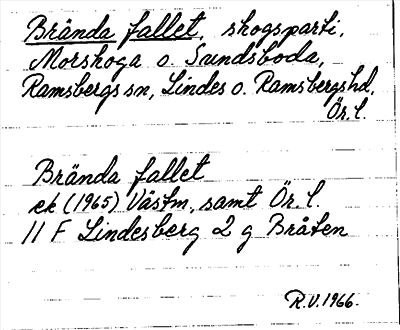 Brända fallet, skogsparti,
Morshoga o. Sundsboda,
Ramsbergs sn, Lindes o. Ramsbergs hd,
Ör. l.
Brända fallet
ek (1965) Västm. samt Ör. l.
11 F Lindesberg 2 g Bråten
R.V. 1966.